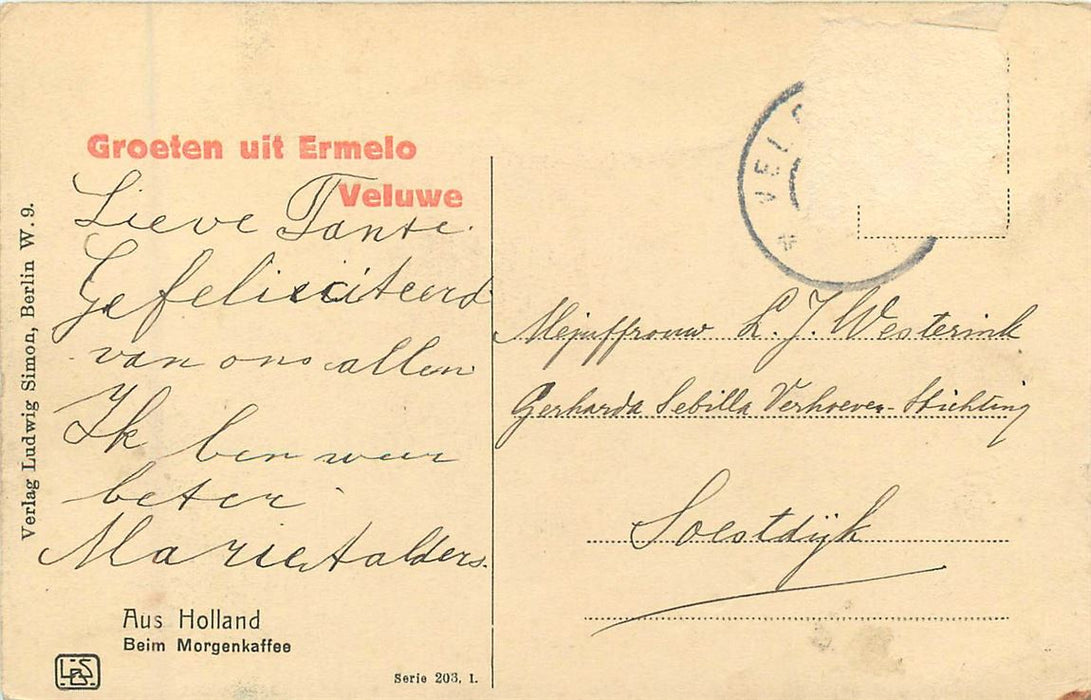 Groeten uit Ermelo
Veluwe
Lieve Tante.
Gefeliciteerd
van ons allen
Ik ben weer
beter.
Marie Aalders.
Aus Holland
Beim Morgenkaffee
LSB
Serie 203, 1.
Verlag Ludwig Simon, Berlin W. 9.
VELS
Mejuffrouw L. J. Westerink
Gerharda Sebilla Verhoeven-Stichting
Soestdijk